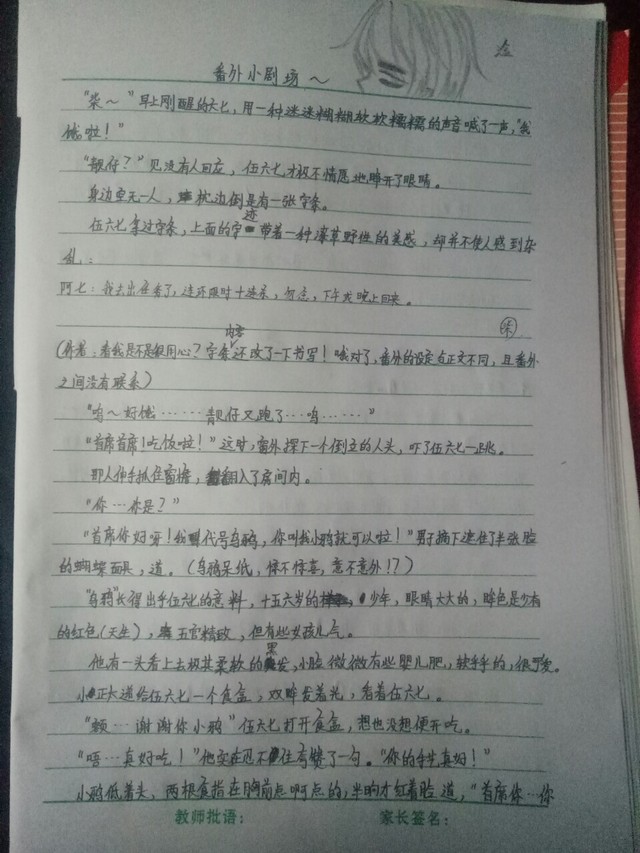 番外小剧场～
"柒～"早上刚醒的六七，用一种迷迷糊糊软软糯糯的声音喊了一声，"我
饿啦！"
"靓仔？"见没有人回应，伍六七才极不情愿地睁开了眼睛。
身边空无一人，枕边倒是有一张字条。
伍六七拿过字条，上面的字迹带着一种潦草野性的美感，却并不使人感到杂
乱：
阿七：我去出任务了，连环限时十连杀，勿念，下午或晚上回来。
柒
（作者：看我是不是很用心？字条内容还改了一下书写！哦对了，番外的设定与正文不同，且番外
之间没有联系）
"呜～好饿………靓仔又跑了…呜………"
"首席首席！吃饭啦！"这时，窗外探下一个倒立的人头，吓了伍六七一跳。
那人伸手抓住窗檐，翻入了房间内。
"你…你是？"
"首席你好呀！我代号乌鸦，你叫我小鸦就可以啦！"男子摘下遮住了半张脸
的蝴蝶面具，道。（乌鸦呈纸，惊不惊喜，意不意外！？）
"乌鸦"长得出乎伍六七的意料，十五六岁的少年，眼睛大大的，眸色是少有
的红色（天生），五官精致，但有些女孩儿气。
他有一头看上去极其柔软的黑发，小脸微微有些婴儿肥，软乎乎的，很可爱。
小正太递给伍六七一个食盒，双眸发着光，看着伍六七。
"额…谢谢你小鸦"伍六七打开食盒，想也没想便开吃。
"唔…真好吃！"他实在忍不住夸赞了一句。"你的手艺真好！"
小鸦低着头，两根食指在胸前点啊点的，半晌才红着脸道，"首席你…你
教师批语： 家长签名：